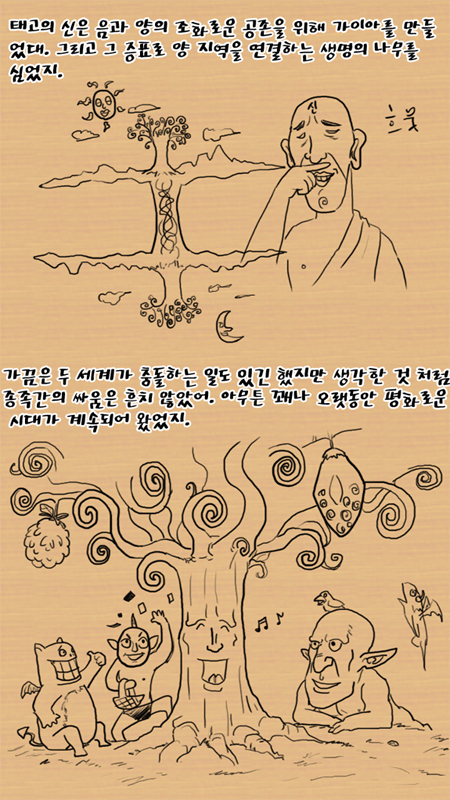 태고의 신은 음과 양의 조화로운 공존을 위해 가이아를 만들
었대. 그리고 그 증표로 양 지역을 연결하는 생명의 나무를
심었지.
신
흐뭇
가끔은 두 세계가 충돌하는 일도 있긴 했지만 생각한 것 처럼
종족간의 싸움은 흔치 않았어. 아무튼 꽤나 오랫동안 평화로운
시대가 계속되어 왔었지.